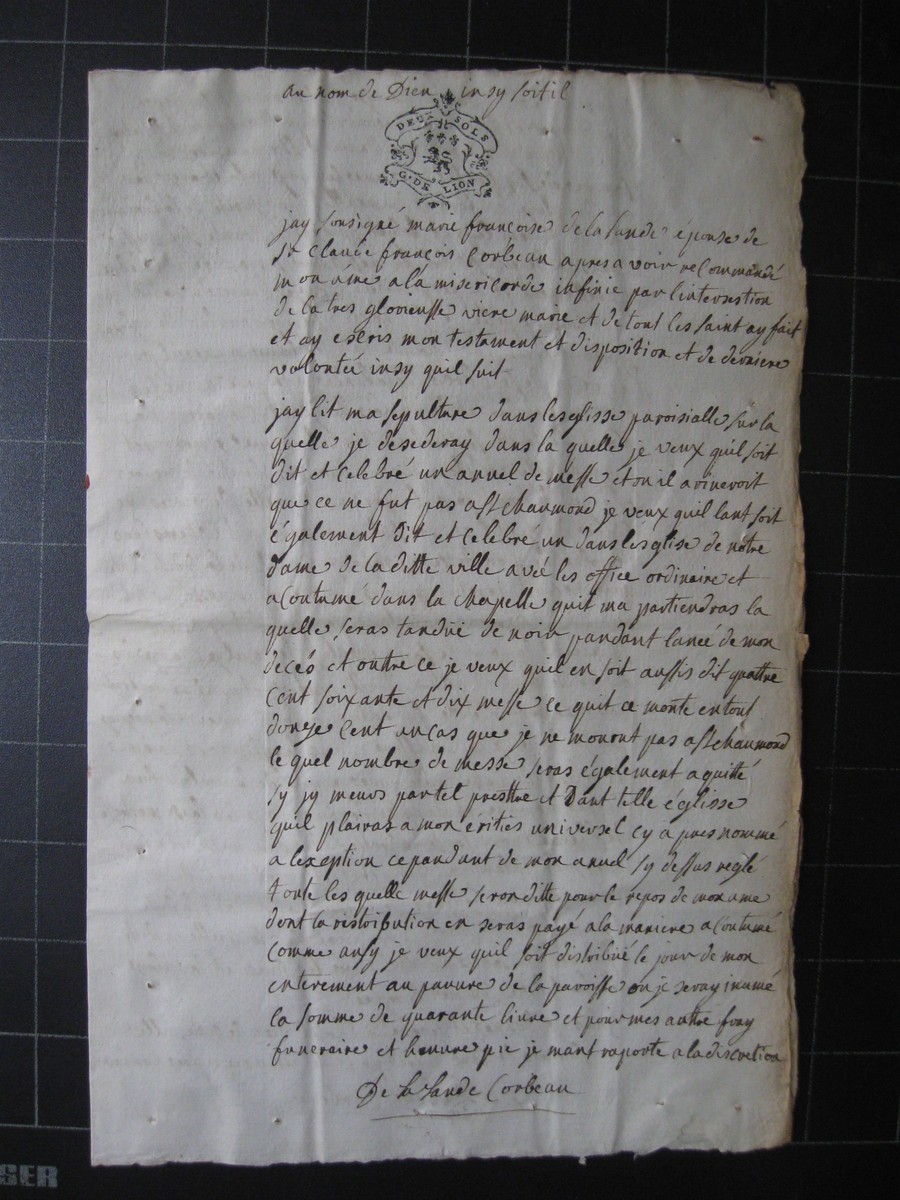 au nom de Dieu insy soitil
DEUX SOLS
G. DE LION
jay sousigné marie francoise de la Lande épouse de
Sr Claude françois Corbeau apres avoir recommandé
mon ame a la misericorde infinie par lintersestion
de la tres glorieusse viere marie et de tout les saint ay fait
et ay escris mon testament et disposition et de derniere
volonteé insy quil suit
jay lit ma sepulture dans lesglisse paroisialle sur la
quelle je desederay dans la quelle je veux quil soit
dit et Celebré un anuel de messe et ou il arineroit
que ce ne fut pas a St chaumond je veux quil lant soit
également dit et celebré un dans lésglise de notre
dame de la ditte ville avéc les office ordinaire et
acoutumé dans la chapelle quit ma partiendras la
quelle seras tanduë de noir pandant lanéé de mon
decés et outtre ce je veux quil en soit aussis dit quattre
cent soixante et dix messe ce quit ce monte en tout
douse cent ancas que je ne mourut pas a St chaumond
le quel nombre de messe seras également aquitté
sy jy meurs par tel presttre et Dant telle églisse
quil plairas a mon éritiés universel cy apres nommé
a lexeption cepandant de mon anuel sy dessus reglé
toute les quelle messe seron ditte pour le repos de mon ame
dont la restribution en seras payé a la maniere acoutumé
comme ansy je veux quil soit distribué le jour de mon
enterement au pauvre de la paroisse ou je seray inumé
la somme de quarante livre et pour mes auttre fray
funeraire et heuvre pie je mant raporte a la discretion
De la Lande Corbeau
SER